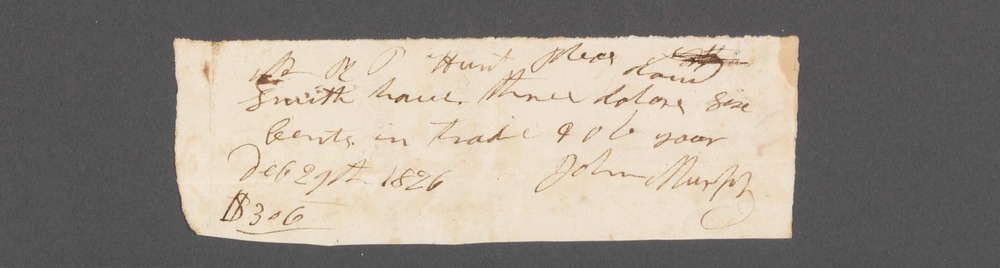 Mr R P Hunt pleas
david
Smith have three dolars Six
Cents in trade & ob your
Deb 29th 1826 John Murphy
$306